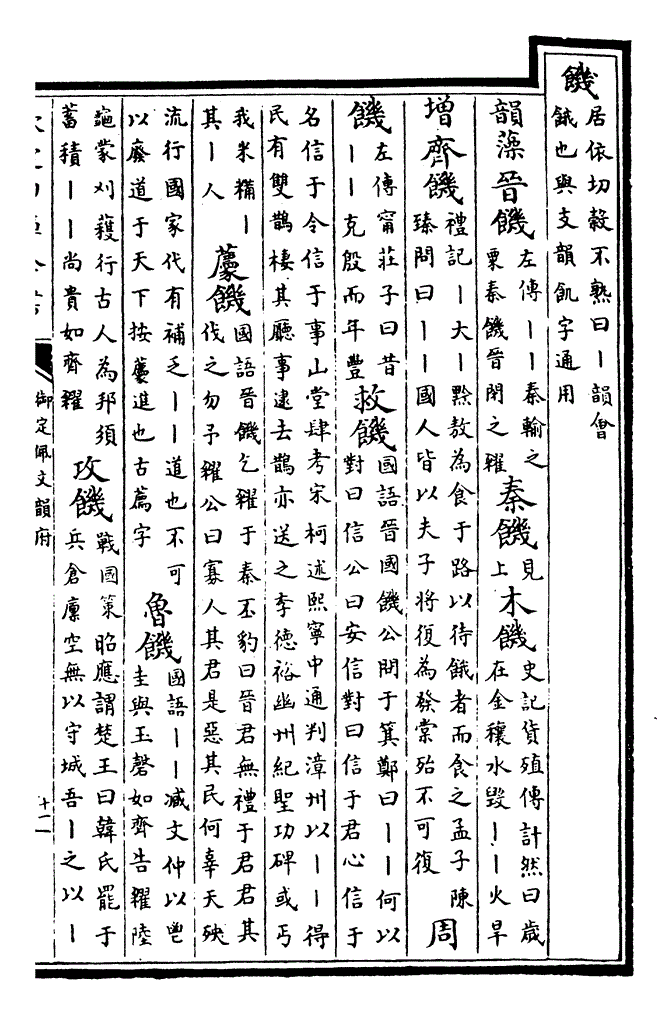 饑居依切穀不熟曰丨韻會
餓也與支韻飢字通用
韻藻晉饑左傳丨丨秦輸之
粟秦饑晉閉之糴秦饑見
上木饑史記貨殖傳計然曰歲
在金穰水毀丨丨火旱
增齊饑禮記丨大丨黔敖為食于路以待餓者而食之孟子陳
臻問曰丨丨國人皆以夫子將復為發棠殆不可復周
饑左傳甯莊子曰昔
丨丨克殷而年豐救饑國語晉國饑公問于箕鄭曰丨丨何以
對曰信公曰安信對曰信于君心信于
名信于令信于事山堂肆考宋柯述熙寧中通判漳州以丨丨得
民有雙鵲棲其廳事逮去鵲亦送之李德裕幽州紀聖功碑或丐
我米糒丨
其丨人饑國語晉饑乞糴于秦丕豹曰晉君無禮于君君其
伐之勿予糴公曰寡人其君是惡其民何辜天殃
流行國家代有補乏丨丨道也不可
以廢道于天下按進也古薦字魯饑國語丨丨臧文仲以鬯
圭與玉磬如齊告糴陸
龜蒙刈穫行古人為邦須
蓄積丨丨尚貴如齊糴攻饑戰國策昭應謂楚王曰韓氏罷于
兵倉廩空無以守城吾丨之以丨
御定佩文韻府
十二